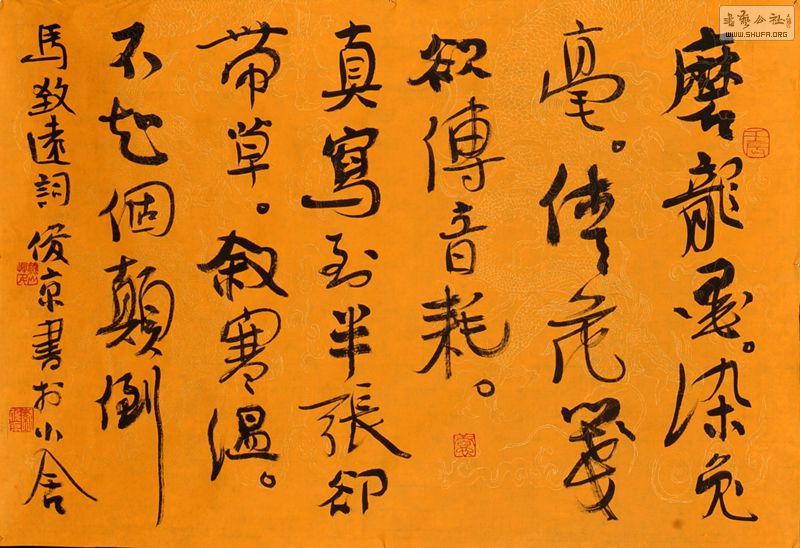 書藝公社
WWW.SHUFA.ORG
磨龍墨。染兔
毫。倩花箋
欲傳音耗。
真寫到半張卻
帶草。敘寒溫。
不知個顛倒
馬致遠詞 俊京書於小舍